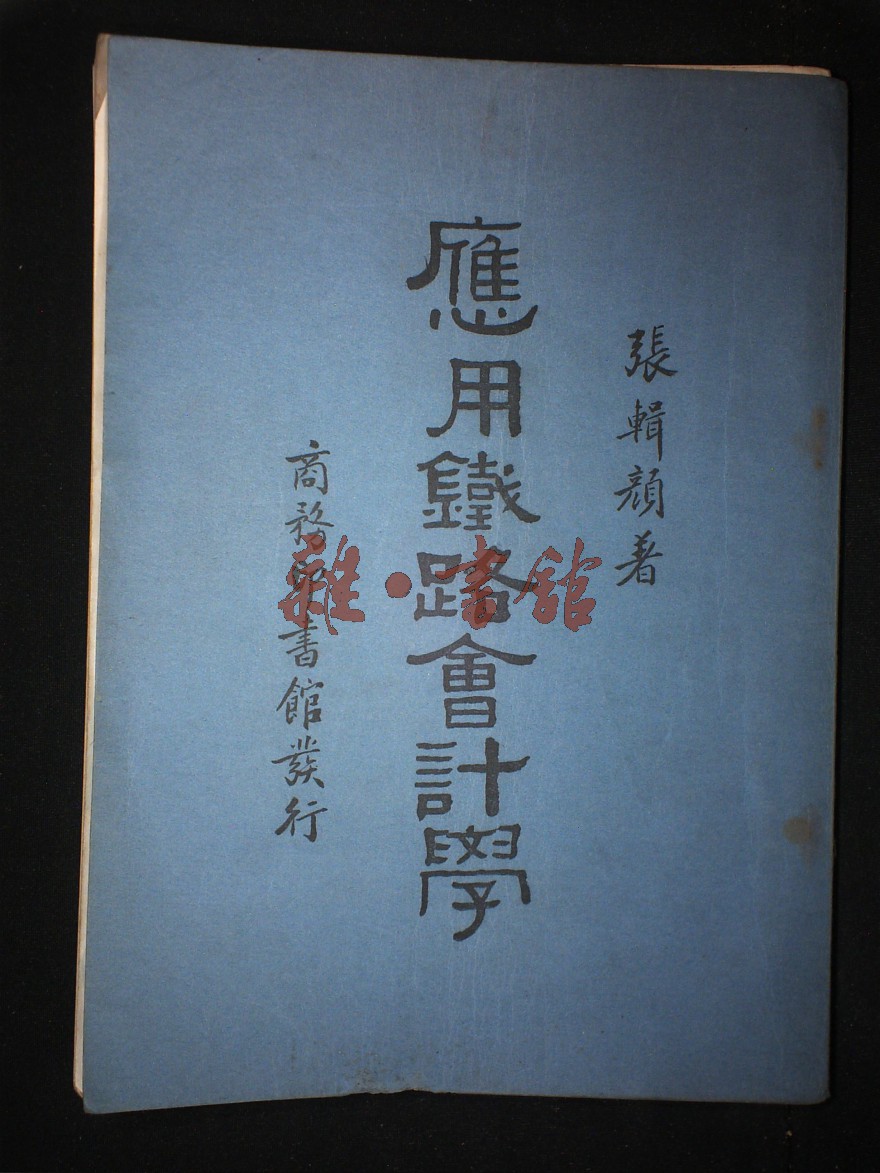 張輯顏著
應用鐵路會計學
商務印書館發行
雜·書館